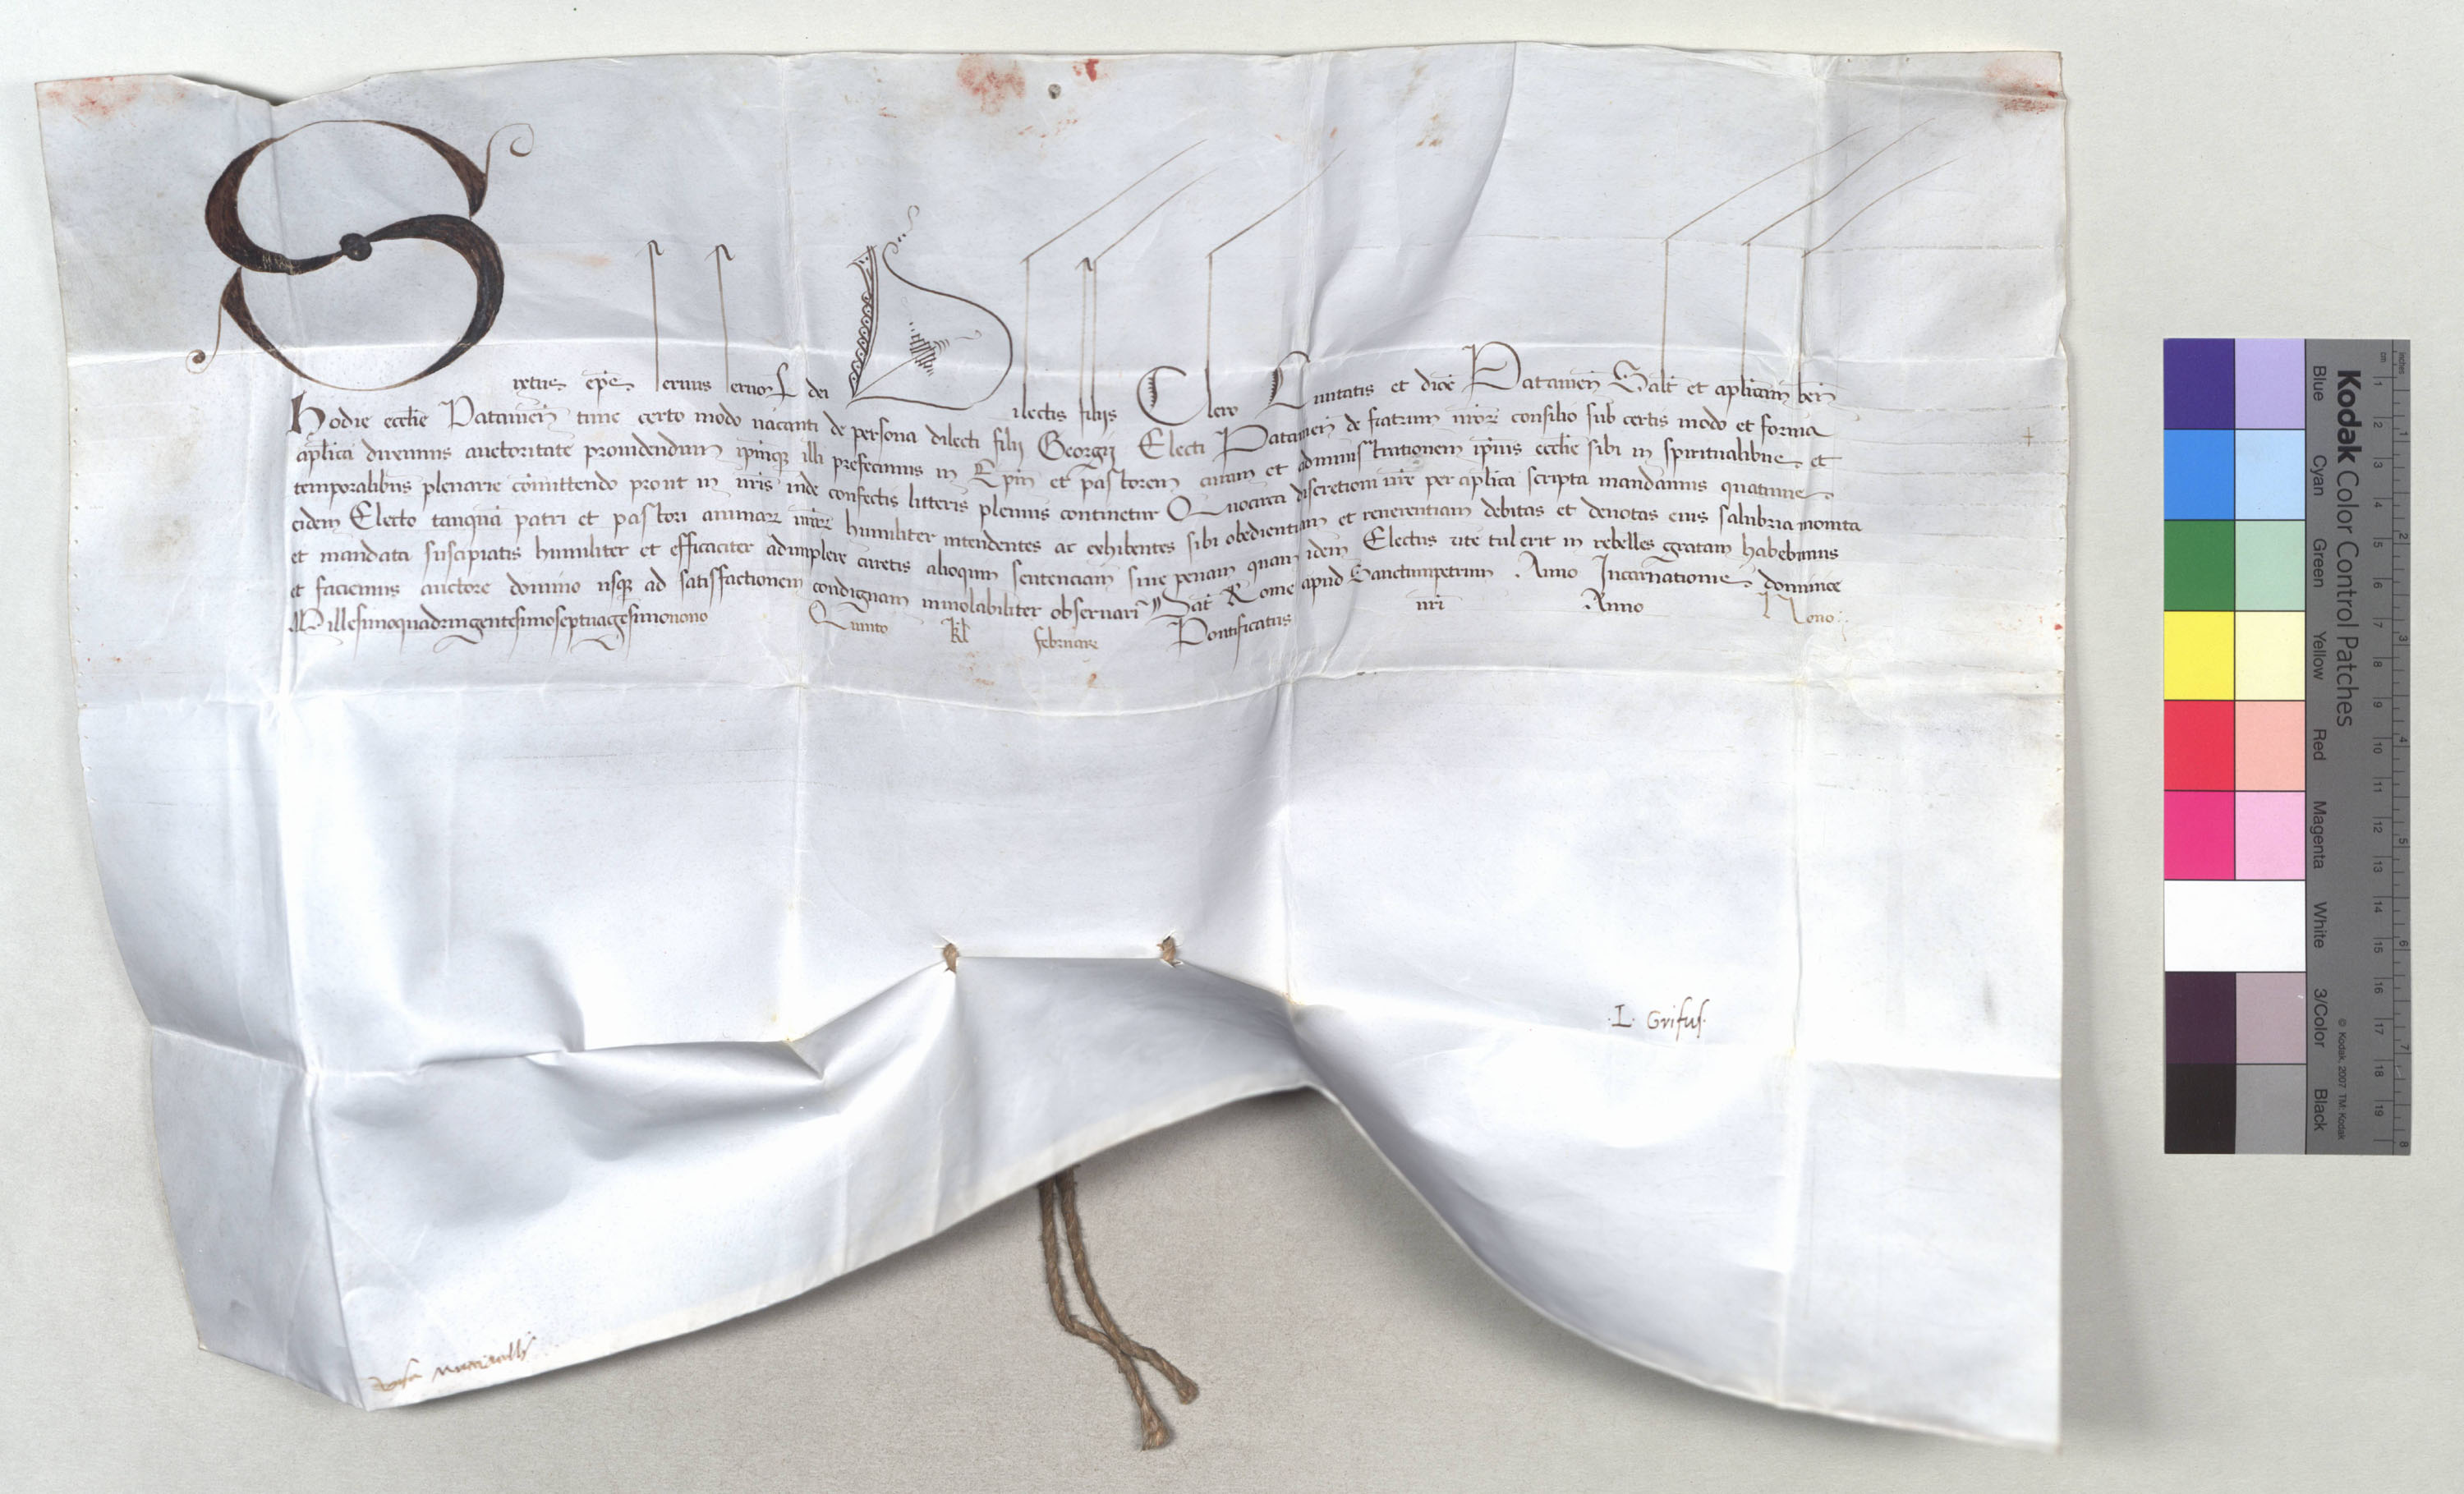 Sixtus ep̄s servus servor̄ dei Dilectis filiis Clero Civitatis et dioc̄ Patavien̄ Sal̄t et ap̄licam ben̄
Hodie eccl̄ie Patavien̄ tunc certo modo vacanti de persona dilecti filii Georgii Electi Patavien̄ de fratrum nr̄or̄ consilio sub certis modo et forma
ap̄lica duximus auctoritate providendum ip̄mqꝫ illi prefecimus in Ep̄m et pastorem curam et administrationem ip̄ius eccl̄ie sibi in spiritualibus et
temporalibus plenarie com̄ittendo prout in nr̄is inde confectis litteris plenius continetur Quocirca discretioni vr̄e per ap̄lica scripta mandamus quatinus
eidem Electo tanquā patri et pastori animar̄ vr̄ar̄ humiliter intendentes ac exhibentes sibi obedientiam et reverentiam debitas et devotas eius salubria monita
et mandata suscipiatis humiliter et efficaciter adimplere curetis alioquin sentenciam sive penam quam idem Electus rite tulerit in rebelles gratam habebimus
et faciemus auctore domino usqꝫ ad satisfactionem condignam inviolabiliter observari Dat̄ Rome apud Sanctumpetrum Anno Incarnationis dominice
Millesimoquadringentesimoseptuagesimonono Quinto kl̄ februarii Pontificatus nr̄i Anno Nono:.
.L. Grifus.
Kodak Color Control Patches
Blue Cyan Green Yellow Red Magenta White 3/Color Black
© Kodak, 2007 TM: Kodak
inches 1 2 3 4 5 6 7 8
cm 1 2 3 4 5 6 7 8 9 10 11 12 13 14 15 16 17 18 19